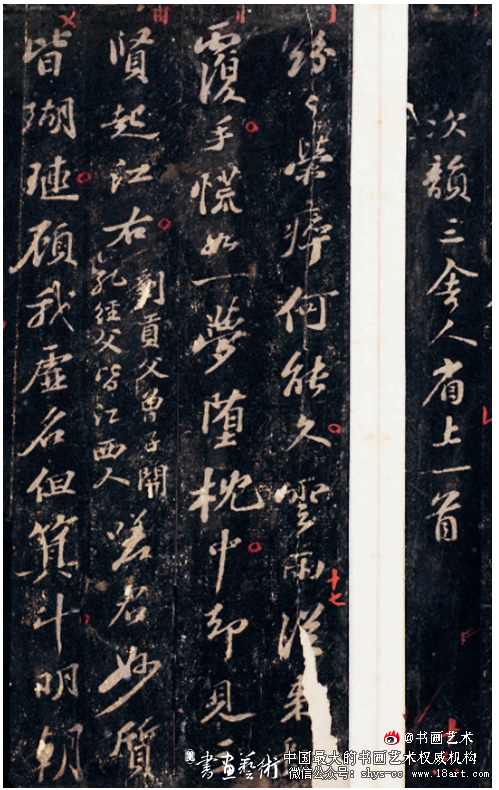 次韻三舍人省上一首
紛々榮瘁何能久雲雨從來
覆手慌如一夢墮枕中却見三
賢起江右
劉貢父曾子開
孔經父皆江西人
嗟君妙質
皆瑚璉顧我虛名但箕斗明朝
十七
書画艺术
書畫藝術
中国最大的书画艺术权威机构
微信公众号: shys-cc www.18art.com